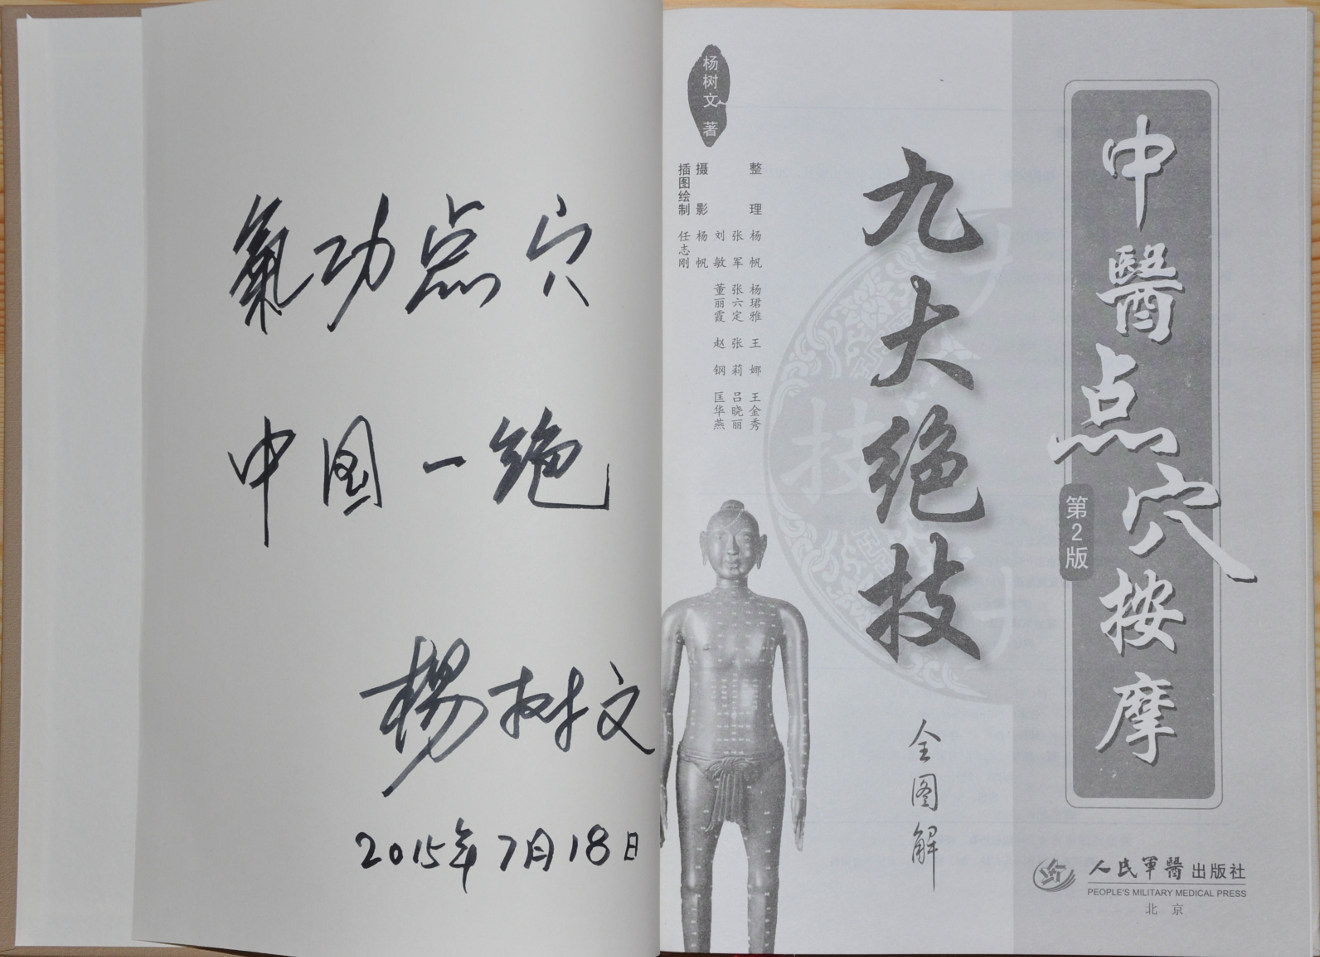 氣功点穴
中国一绝
楊树文
2015年7月18日
中醫点穴按摩
第2版
九大绝技
全图解
杨树文 著
整理 杨帆 杨珺雅 王娜 王金秀
张军 张六定 张莉 吕晓丽
刘敏 董丽霞 赵钢 匡华燕
摄影 杨帆
插图绘制 任志刚
技
人民軍醫出版社
PEOPLE'S MILITARY MEDICAL PRESS
北京